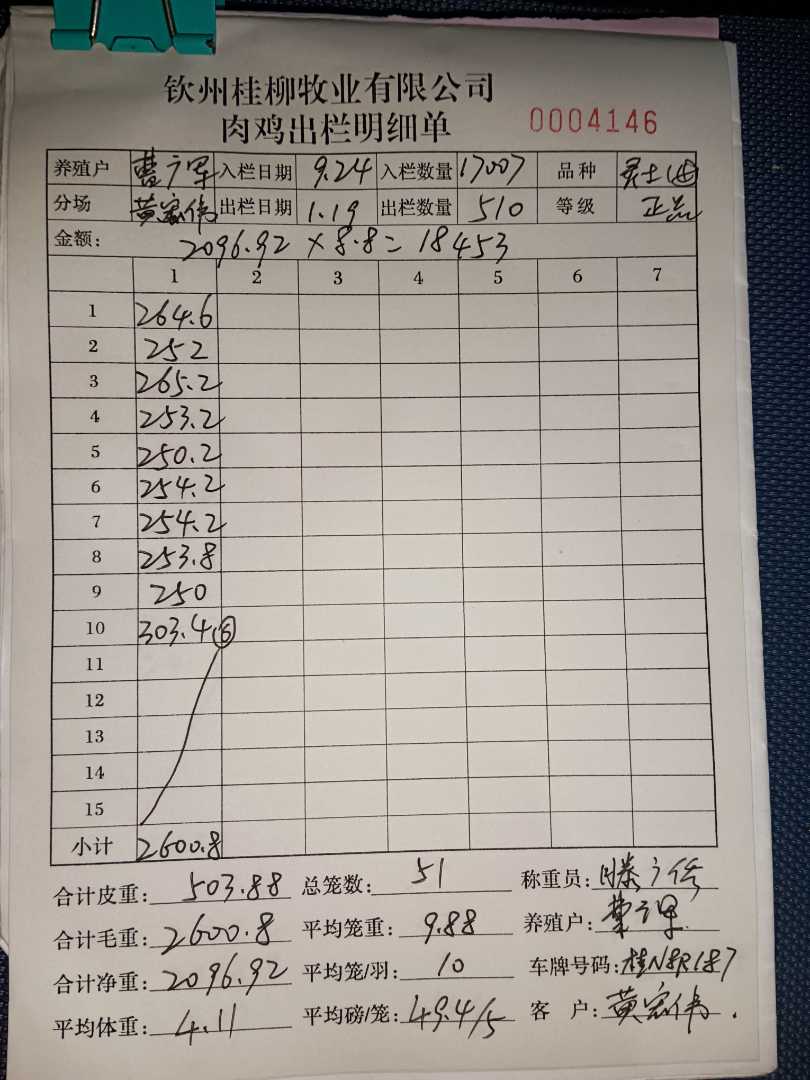 钦州桂柳牧业有限公司
肉鸡出栏明细单 0004146
养殖户 曹广军 入栏日期 9.24 入栏数量 17007 品种
分场 黄家伟 出栏日期 1.19 出栏数量 510 等级 正品
金额: 2096.92 × 8.8 = 18453
1 2 3 4 5 6 7
1 264.6
2 252
3 265.2
4 253.2
5 250.2
6 254.2
7 254.2
8 253.8
9 250
10 303.4 ⑥
11
12
13
14
15
小计 2600.8
合计皮重: 503.88 总笼数: 51 称重员:
合计毛重: 2600.8 平均笼重: 9.88 养殖户: 曹广军
合计净重: 2096.92 平均笼/羽: 10 车牌号码: 桂N8R187
平均体重: 4.11 平均磅/笼: 49.4/5 客 户: 黄家伟.